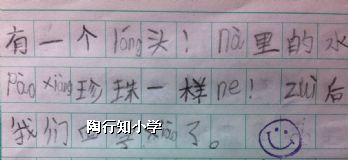 有一个lóng头！Nà里的水
pào xiàng珍珠一样ne！zuì后
我们 了。
陶行知小学